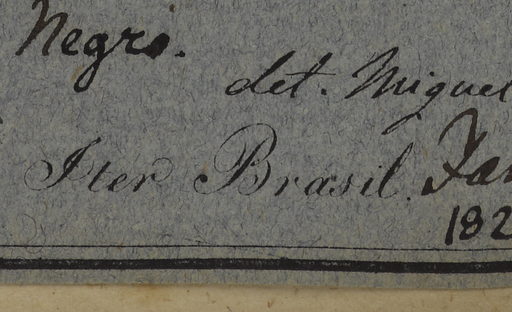 Negro.
det. Miguel
Iter Brasil. Jan
182